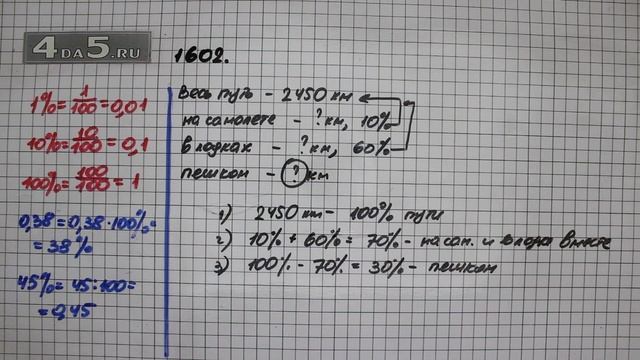 4DA5.RU
1602.
1% = 1/100 = 0,01
10% = 10/100 = 0,1
100% = 100/100 = 1
0,38 = 0,38 · 100% =
= 38%
45% = 45 : 100 =
= 0,45
Весь путь - 2450 км
на самолете - ? км, 10%
в лодках - ? км, 60%
пешком - ? км
1) 2450 км - 100% пути
2) 10% + 60% = 70% - на сам. и в лодк вместе
3) 100% - 70% = 30% - пешком